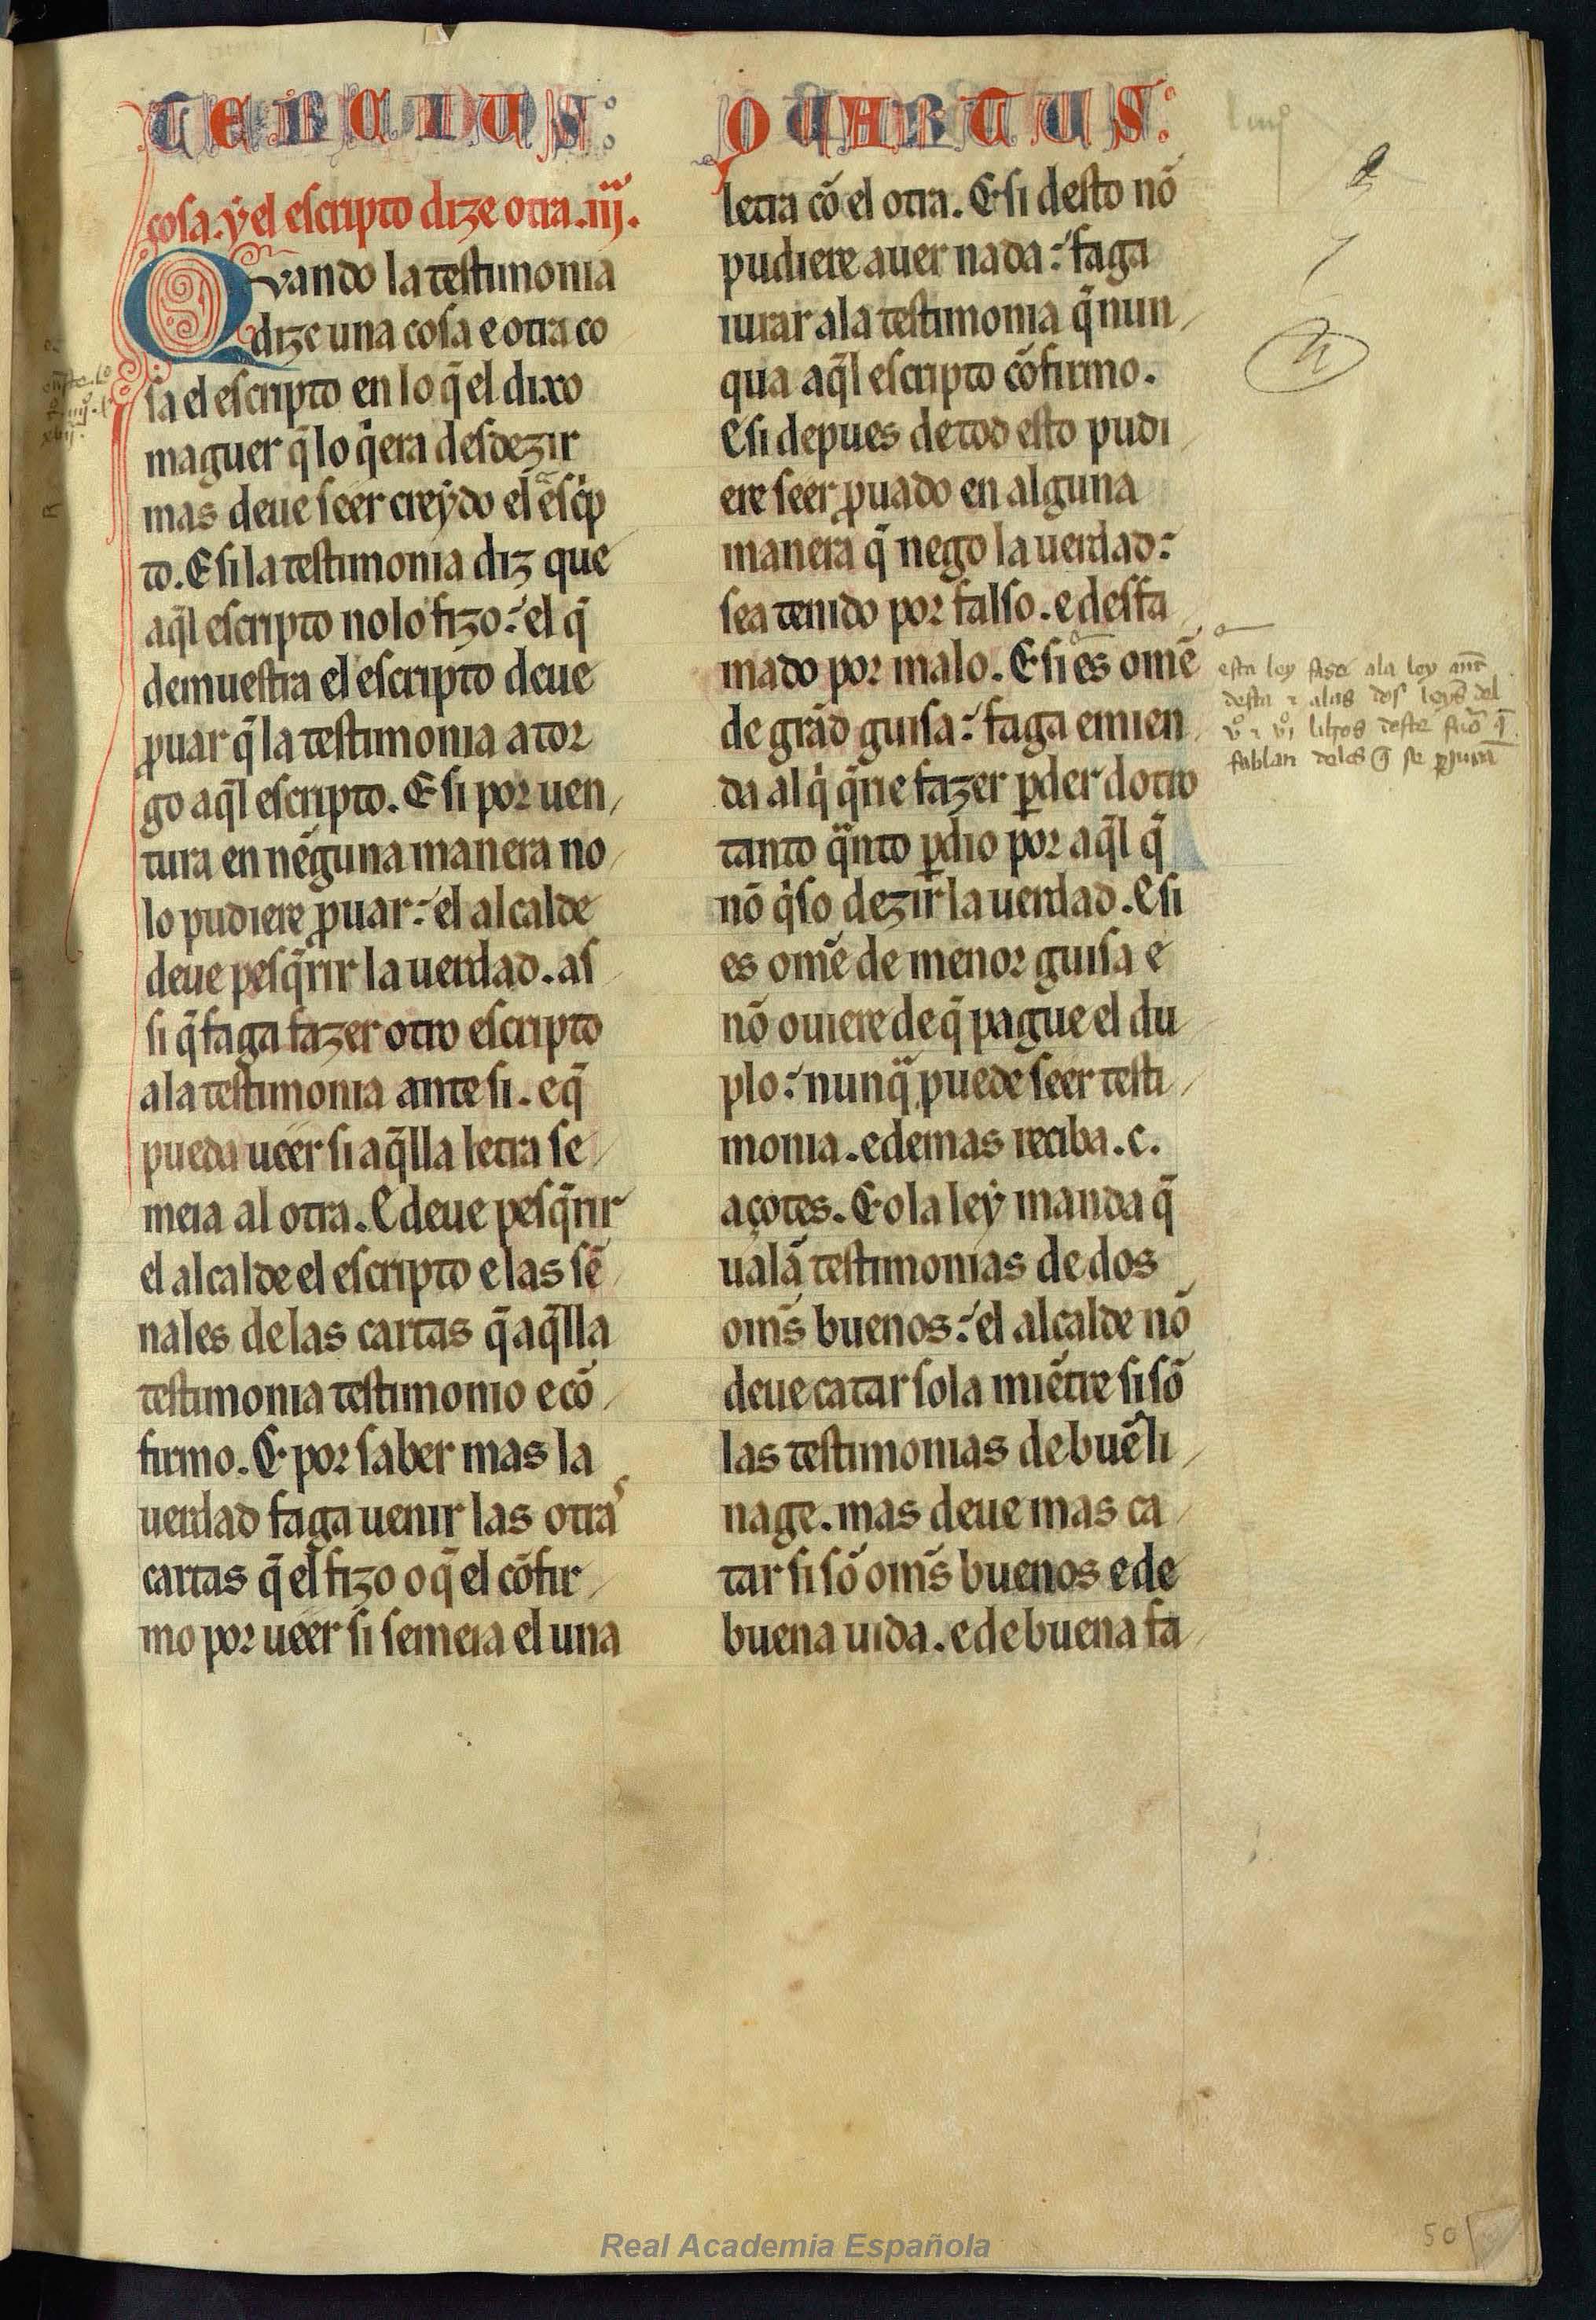 TERCIUS:
cosa. ẏ el escripto dize otra .iij.
Quando la testimonia
dize una cosa e otra co
sa el escripto en lo q̃ el dixo
maguer q̃ lo q̃era desdezir
mas deue seer creẏdo el esc̃p
to. E si la testimonia diz que
aq̃l escripto no lo fizo: el q̃
demuestra el escripto deue
ꝓuar q̃ la testimonia ator
go aq̃l escripto. E si por uen
tura en nẽguna manera no
lo pudiere ꝓuar: el alcalde
deue pesq̃rir la uerdad. as
si q̃ faga fazer otro escripto
a la testimonia ante si. e q̃
pueda ueer si aq̃lla letra se
meia al otra. E deue pesq̃rir
el alcalde el escripto e las sẽ
nales de las cartas q̃ aq̃lla
testimonia testimonio e cõ
firmo. E por saber mas la
uerdad faga uenir las otras
cartas q̃ el fizo o q̃ el cõfir
mo por ueer si semeia el una
QUARTUS:
letra cõ el otra. E si desto nõ
pudiere auer nada: faga
iurar a la testimonia q̃ nun
qua aq̃l escripto cõfirmo.
E si depues de tod esto pudi
ere seer ꝓuado en alguna
manera q̃ nego la uerdad:
sea tenido por falso. e desfa
mado por malo. E si es omẽ
de grãd guisa: faga emien
da al q̃ q̃rie fazer ꝑder dotro
tanto q̃nto ꝑdio por aq̃l q̃
nõ q̃so dezir la uerdad. E si
es omẽ de menor guisa e
nõ ouiere de q̃ pague el du
plo: nunq̃ puede seer testi
monia. e demas reciba .c.
açotes. E o la leẏ manda q̃
ualã testimonias de dos
oms̃ buenos: el alcalde nõ
deue catar sola miẽtre si sõ
las testimonias de buẽ li
nage. mas deue mas ca
tar si sõ oms̃ buenos e de
buena uida. e de buena fa
esta ley fase ala ley ant̃
desta ⁊ alas dos leyes del
vº ⁊ vjº libros deste fuº q̃
fablan delos q̃ se ꝑjurã
50
Real Academia Española